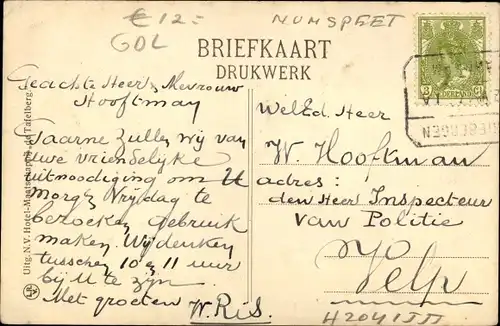 € 12=
GOL
NUNSPEET
BRIEFKAART
DRUKWERK
Geachte Heer & Mevrouw
Hooftman
Gaarne zullen wij van
uwe vriendelijke
uitnoodiging om U
morgen Vrijdag te
bezoeken gebruik
maken. Wij denken
tusschen 10 en 11 uur
bij U te zijn.
Met groeten
W. Ris.
WelEd. Heer
W. Hooftman
adres:
den Heer Inspecteur
van Politie
Velp
H2041
Uitg. N.V. Hotel-Maatschappij de Tafelberg.
3 Ct
NEDERLAND